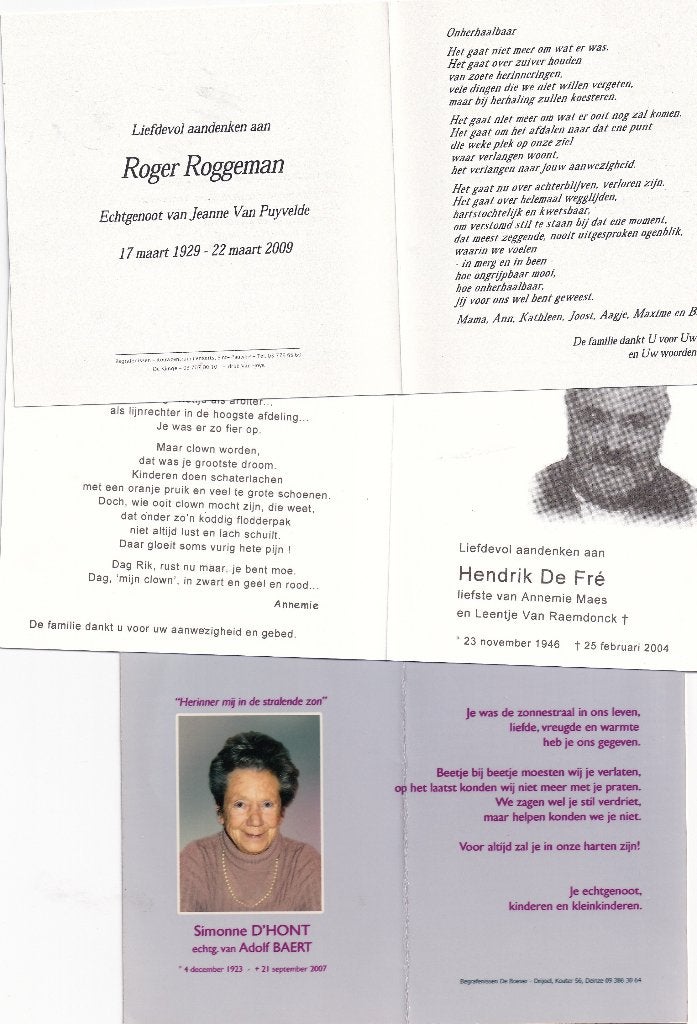 Liefdevol aandenken aan
Roger Roggeman
Echtgenoot van Jeanne Van Puyvelde
17 maart 1929 - 22 maart 2009
Onherhaalbaar
Het gaat niet meer om wat er was.
Het gaat over zuiver houden
van zoete herinneringen,
vele dingen die we niet willen vergeten,
maar bij herhaling zullen koesteren.
Het gaat niet meer om wat er ooit nog zal komen.
Het gaat om het afdalen naar dat ene punt
die weke plek op onze ziel
waar verlangen woont,
het verlangen naar jouw aanwezigheid.
Het gaat nu over achterblijven, verloren zijn.
Het gaat over helemaal wegglijden,
hartstochtelijk en kwetsbaar,
om verstomd stil te staan bij dat ene moment,
dat meest zeggende, nooit uitgesproken ogenblik,
waarin we voelen
- in merg en in been -
hoe ongrijpbaar mooi,
hoe onherhaalbaar,
jij voor ons wel bent geweest.
Mama, Ann, Kathleen, Joost, Aagje, Maxime en B
De familie dankt U voor Uw
en Uw woorden
als arbiter...
als lijnrechter in de hoogste afdeling...
Je was er zo fier op.
Maar clown worden,
dat was je grootste droom.
Kinderen doen schaterlachen
met een oranje pruik en veel te grote schoenen.
Doch, wie ooit clown mocht zijn, die weet,
dat onder zo'n koddig flodderpak
niet altijd lust en lach schuilt.
Daar gloeit soms vurig hete pijn !
Dag Rik, rust nu maar, je bent moe.
Dag, 'mijn clown', in zwart en geel en rood...
Annemie
De familie dankt u voor uw aanwezigheid en gebed.
Liefdevol aandenken aan
Hendrik De Fré
liefste van Annemie Maes
en Leentje Van Raemdonck †
* 23 november 1946 † 25 februari 2004
"Herinner mij in de stralende zon"
Simonne D'HONT
echtg. van Adolf BAERT
* 4 december 1923 - † 21 september 2007
Je was de zonnestraal in ons leven,
liefde, vreugde en warmte
heb je ons gegeven.
Beetje bij beetje moesten wij je verlaten,
op het laatst konden wij niet meer met je praten.
We zagen wel je stil verdriet,
maar helpen konden we je niet.
Voor altijd zal je in onze harten zijn!
Je echtgenoot,
kinderen en kleinkinderen.
Begrafenissen De Boever - Drijoel, Kouter 56, Deinze 09 386 30 64